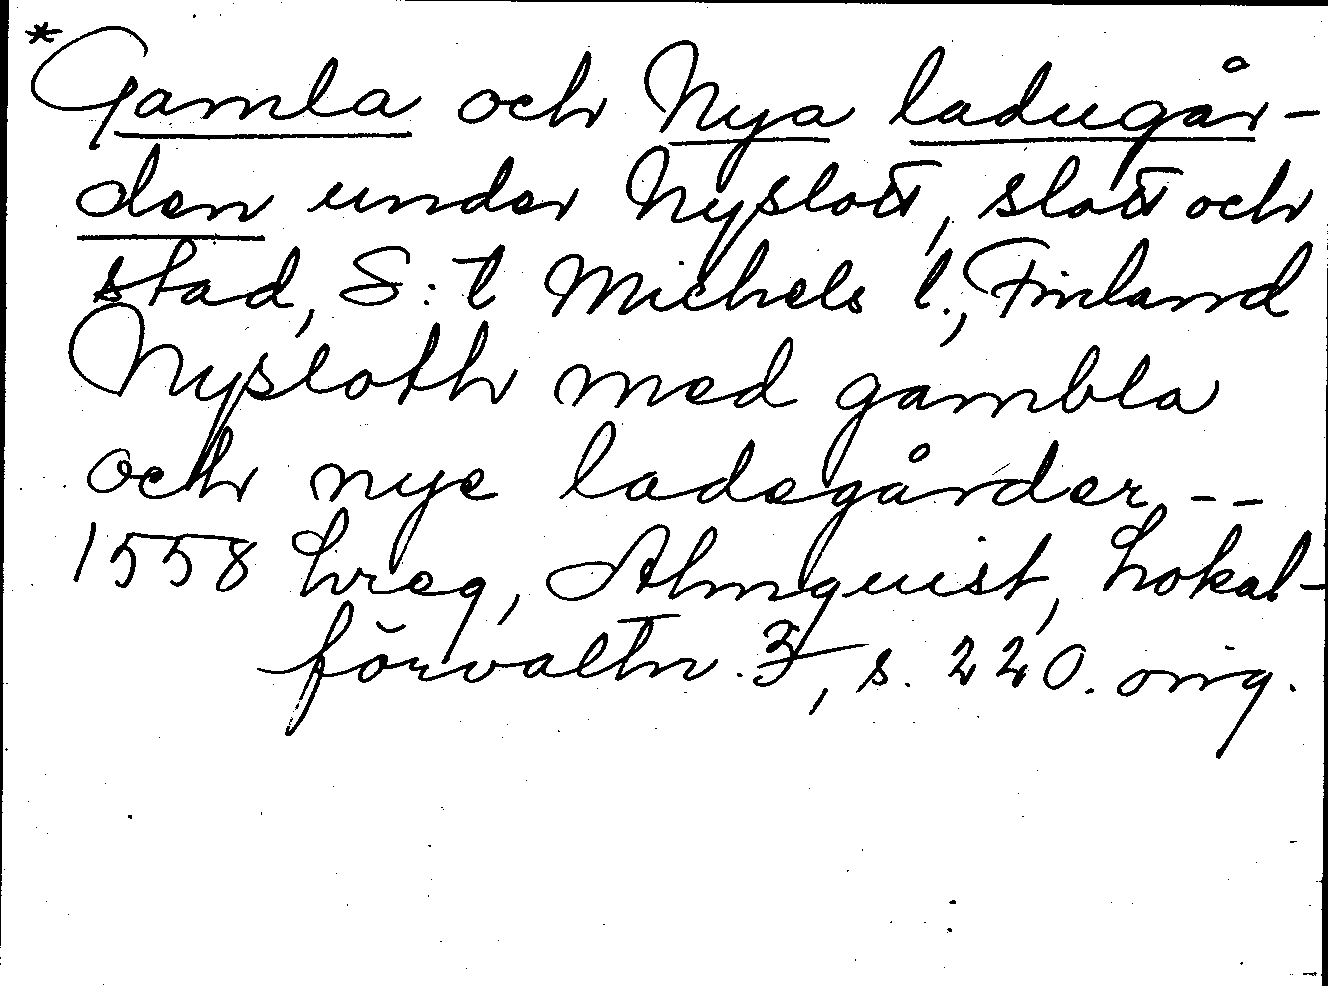 *Gamla och Nya ladugår-
den under Nyslott, slott och
stad, S:t Michels l., Finland
Nysloth med gambla
och nye ladegårder --
1558 hreg, Almquist, Lokal-
förvaltn. 3, s. 220. orig.